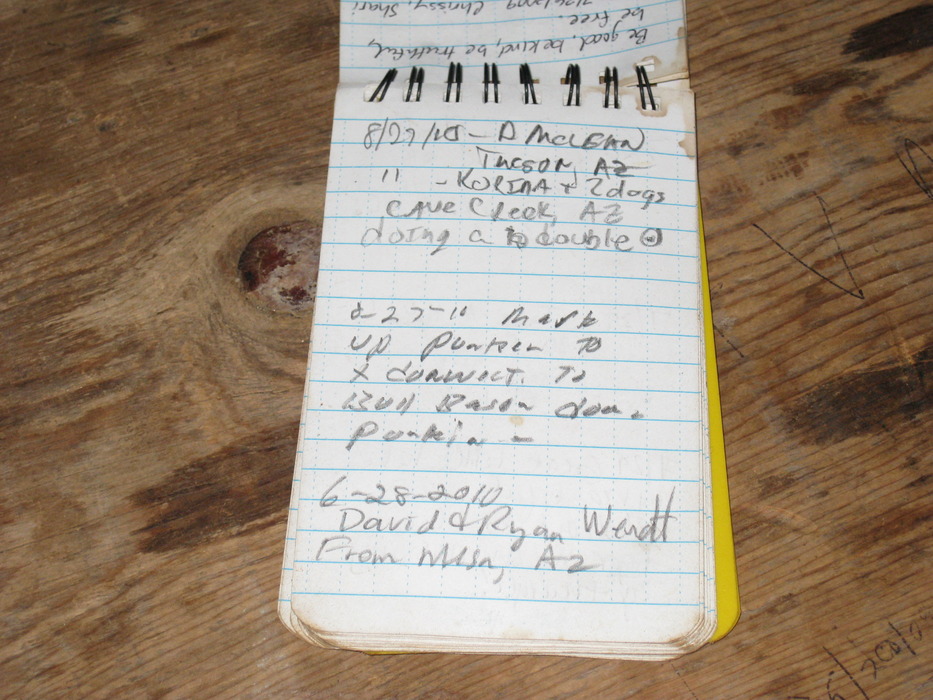 Be good, be kind, be truthful,
be free.
Chrissy, Shari
8/27/10 - D McLEAN
TUCSON, AZ
" - KORINA + 2 dogs
CAVE Creek, AZ
doing a double
8-27-10 Mark
up Punkin To
X connect. To
Bull Basin down
Punkin -
6-28-2010
David & Ryan Wendt
From Mesa, AZ